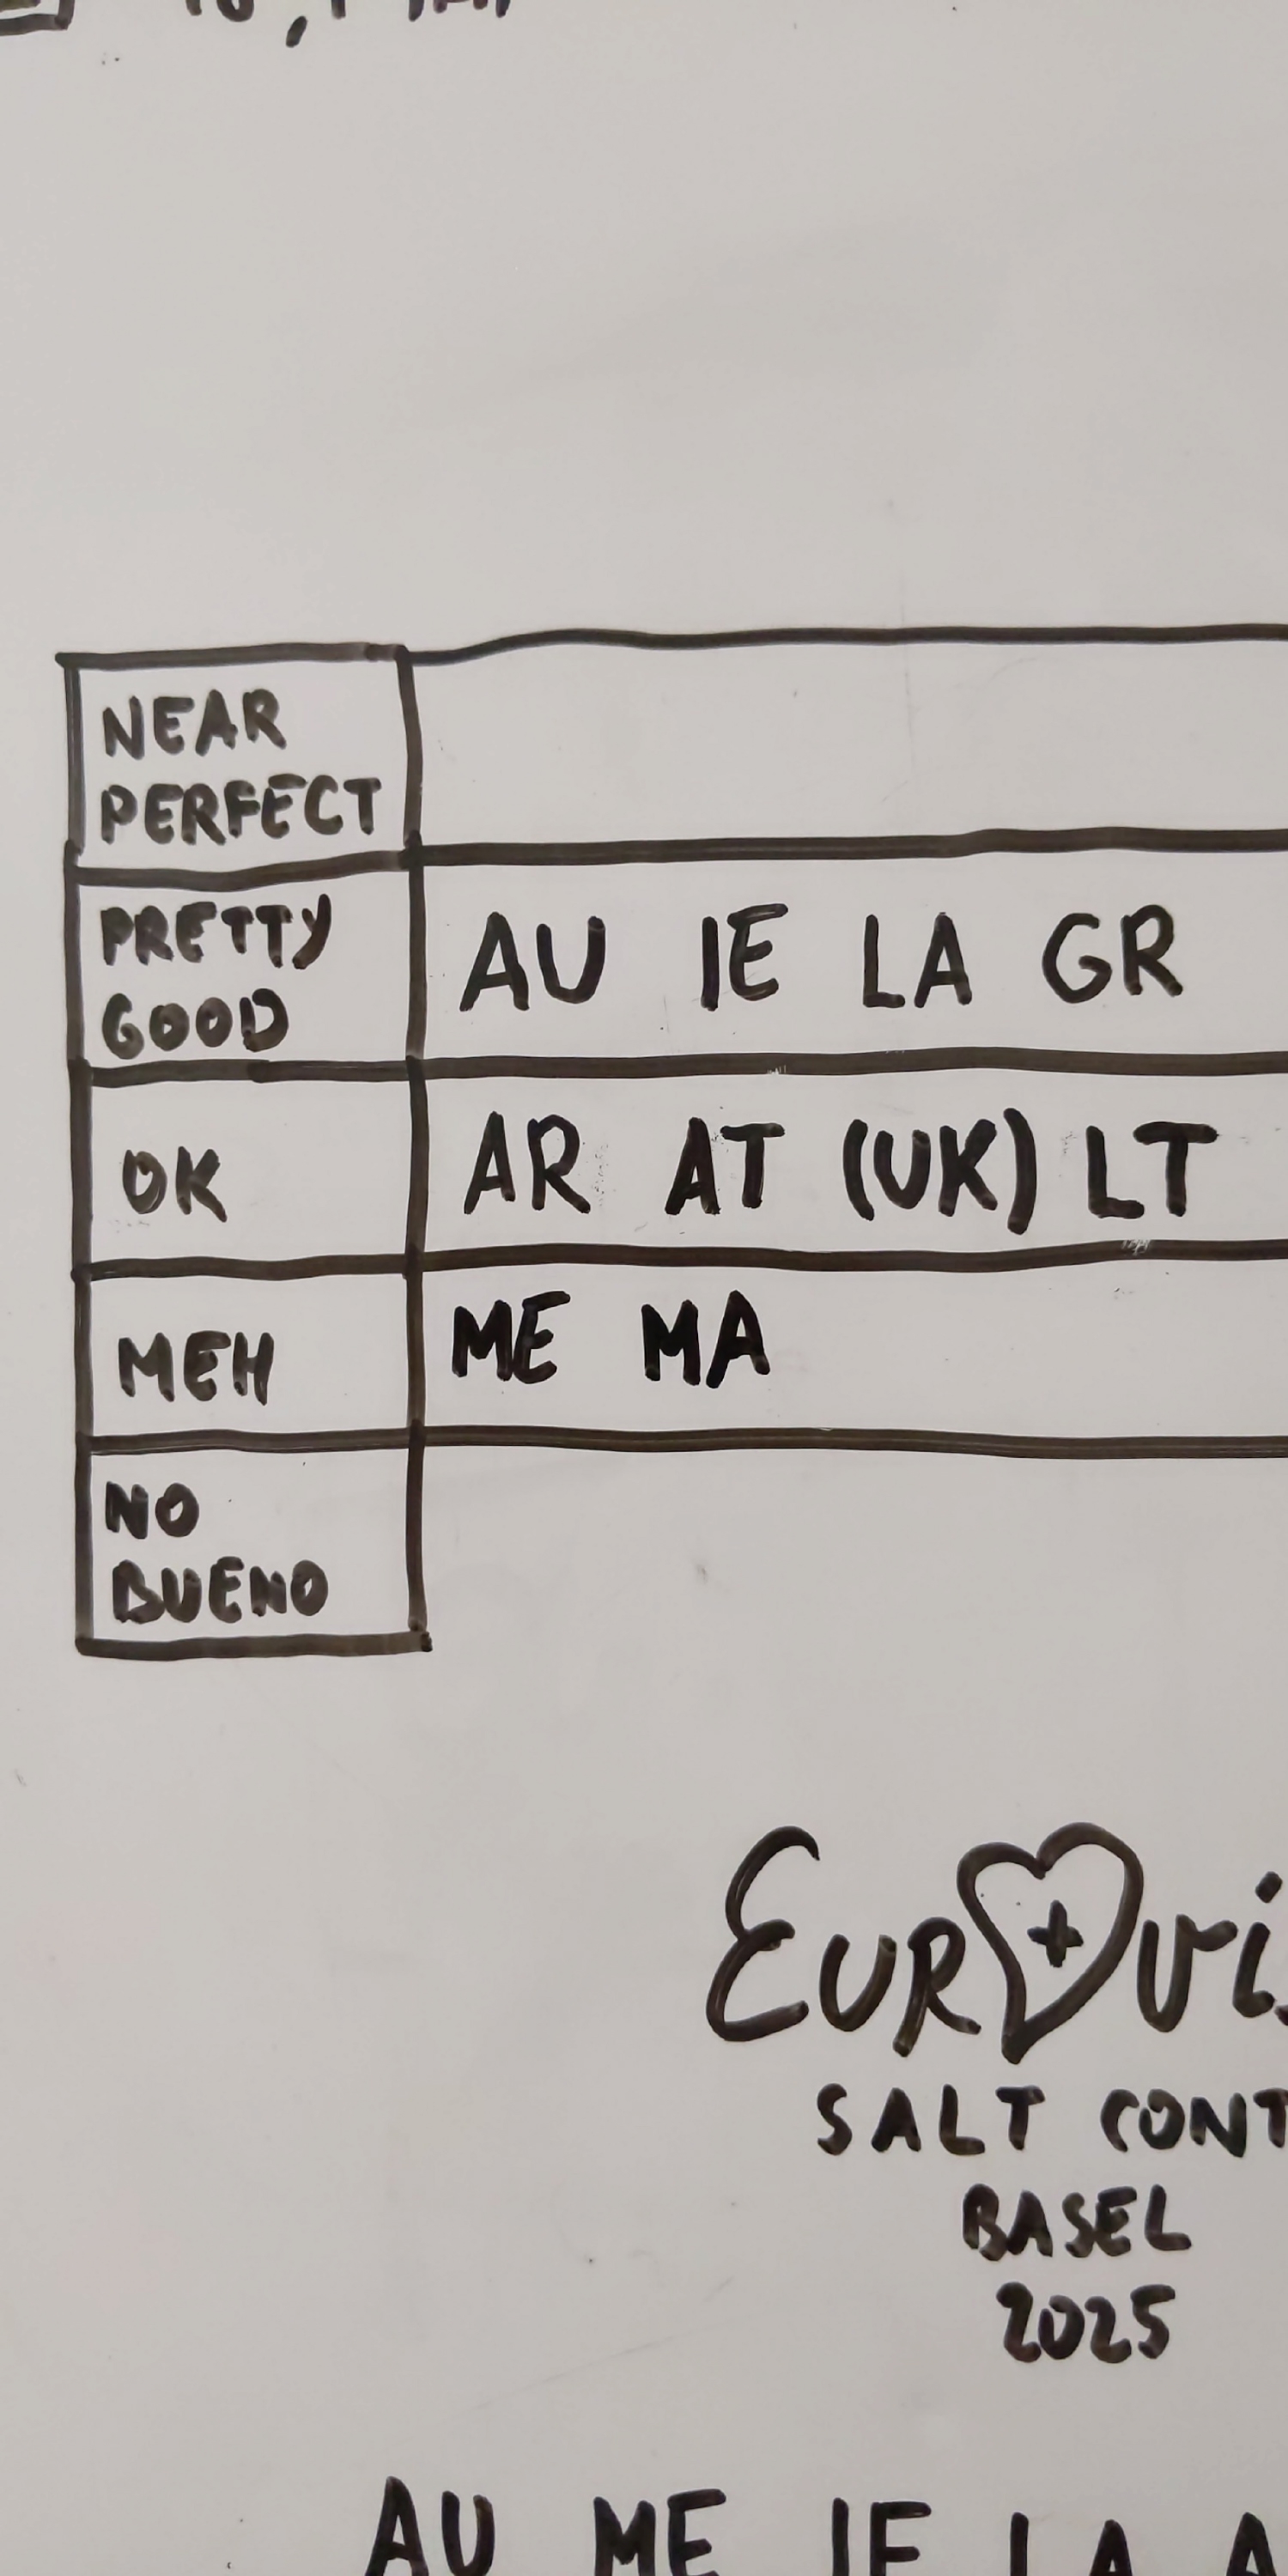 NEAR
PERFECT
PRETTY
GOOD
AU IE LA GR
OK
AR AT (UK) LT
MEH
ME MA
NO
BUENO
SALT CONT
BASEL
2025
AU ME IE LA A